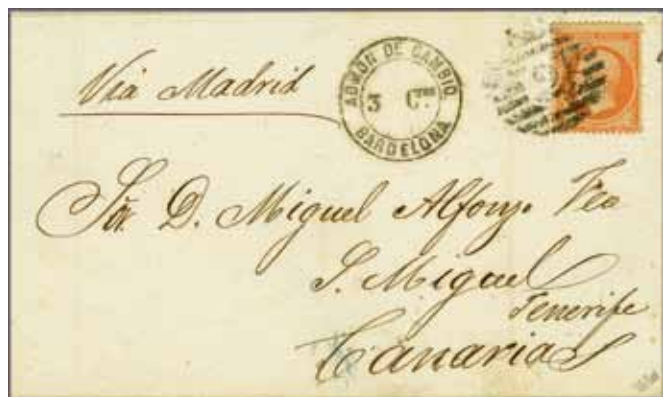 Via Madrid
ADMON DE CAMBIO
3 Cs
BARCELONA
Sr. D. Miguel Alfonso Feo
S. Miguel
Tenerife
Canarias